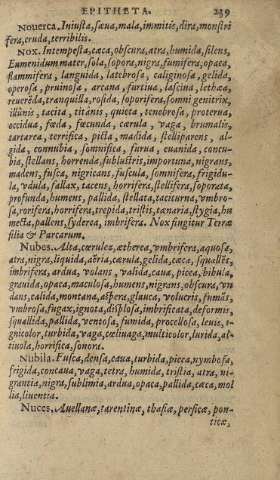 EPITHETA. 239
Nouerca. Iniusta, sæua, mala, immitis, dira, monstri
fera, cruda, terribilis.
Nox. Intempesta, cæca, obscura, atra, humida, silens,
Eumenidum mater, sola, sopora, nigra, fumifera, opaca,
flammifera, languida, latebrosa, caliginosa, gelida,
operosa, pruinosa, arcana, furtiua, lasciua, lethæa,
reuerēda, tranquilla, rosida, soporifera, somni genitrix,
illunis, tacita, titanis, quieta, tenebrosa, proterua,
occidua, fœda, fœcunda, cærula, vaga, brumalis,
tartarea, terrifica, picta, madida, stelliparens, al-
gida, connubia, somnifica, furua, cuanida, concu-
bia, stellans, horrenda, sublustris, importuna, nigrans,
madens, fusca, nigricans, fuscula, somnifera, frigidu-
la, vduda, fallax, tacens, horrifera, stellifera, soporata,
profunda, humens, pallida, stellata, taciturna, vmbro-
sa, rorifera, horrifera, trepida, tristis, tænaria, stygia, hu
mecta, pallens, syderea, imbrifera. Nox fingitur Terræ
filia & Parcarum.
Nubes. Alta, cærulea, ætherea, vmbrifera, aquosa,
atra, nigra, liquida, aëria, cærula, gelida, cæca, squallēs,
imbrifera, ardua, volans, valida, caua, picea, bibula,
grauida, opaca, maculosa, humens, nigrans, obscura, vn
dans, calida, montana, aspera, glauca, volucris, fumās,
vmbrosa, fugax, ignota, displosa, imbrificata, deformis,
squallida, pallida, ventosa, fumida, procellosa, leuis, i-
gnicolor, turbida, vaga, cæliuaga, multicolor, lurida, al-
tiuola, horrifica, sonora.
Nubila. Fusca, densa, caua, turbida, picea, nymbosa,
frigida, concaua, vaga, tetra, humida, tristia, atra, ni-
grantia, nigra, sublimia, ardua, opaca, pallida, cæca, mol
lia, liuentia.
Nuces. Auellanæ, tarentinæ, thasiæ, persicæ, pon-
ticæ,